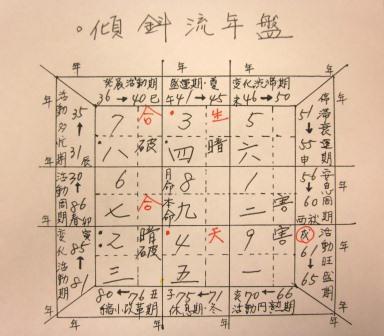 ・傾斜流年盤
年 年 年 年
発展活動期 盛運期・夏 変化沈滞期
36→40 巳 午41→45 未46→50
活動多忙期 35 31 辰
7 合 3 生 5
八 破 四 暗 六
停滞衰運期 51 55 申
年 年
活動周期 30 86 春卯
6 月命 8 1
七 合 本命 九 二 害
安息周期 56 60 西秋
年 年
変化活動期 寅 85 81
2 暗破 4 天 9 害
三 五 一
戌 活動旺盛期 61 65
年 年
80←76 丑 子75←71 亥70←66
改革期 休息期・冬 活動円熟期
年 年 年 年